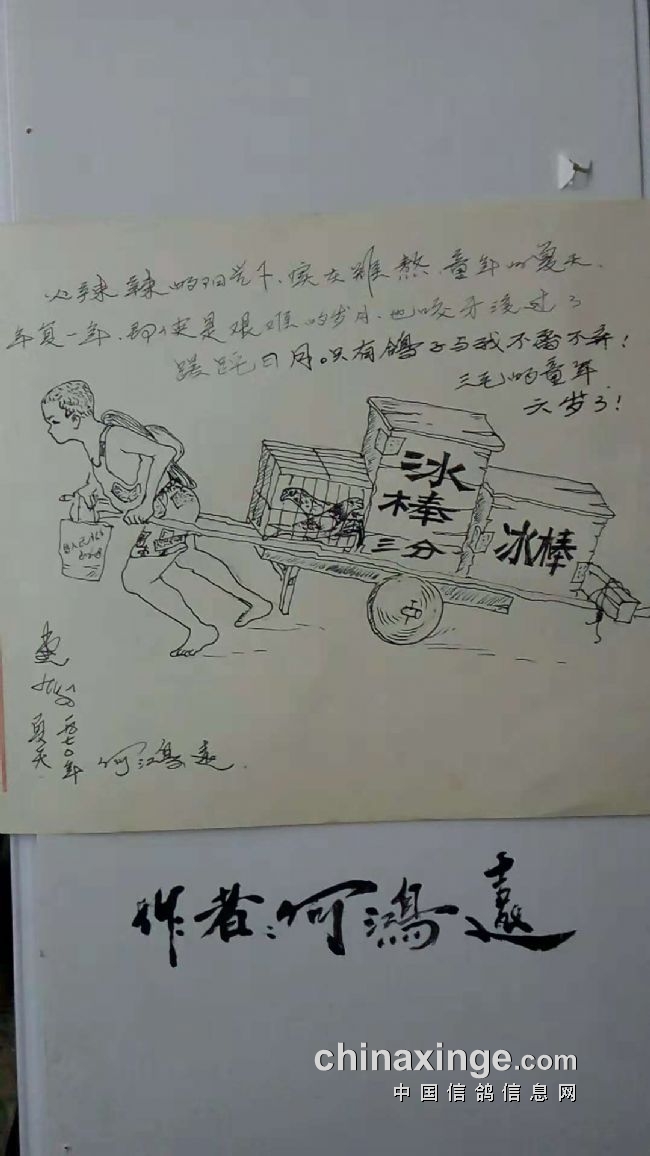 火辣辣的阳光下、实在难熬、童年的夏天、
年复一年、即使是艰难的岁月、也咬牙渡过了
蹉跎日月。只有鸽子与我不离不弃!
三毛的童年、
六岁了!
冰
棒
三分
冰棒
一九七〇年
夏天
何鸿远
作者:何鸿远
chinaxinge.com
中国信鸽信息网